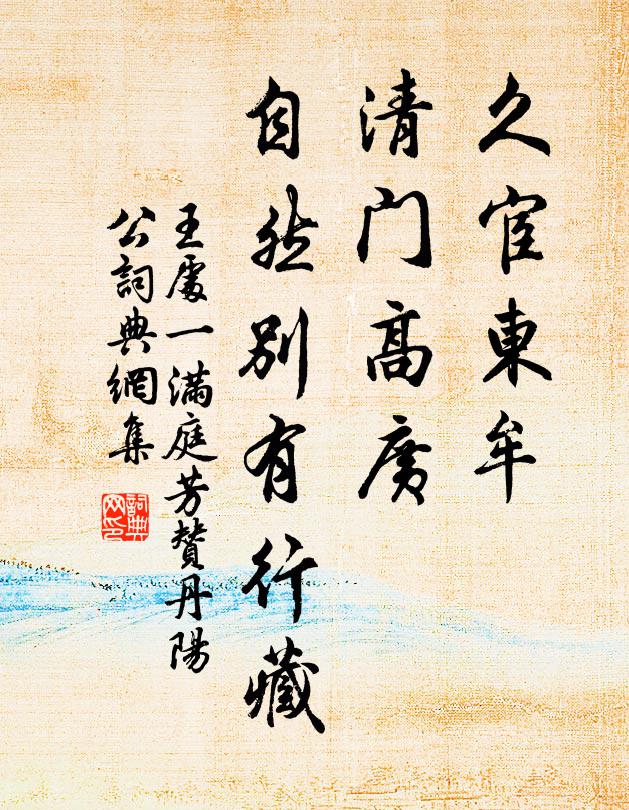 久宦東牟
清門高廣
自然別有行藏
王處一滿庭芳贊丹陽
公詞典網集
詞典網印